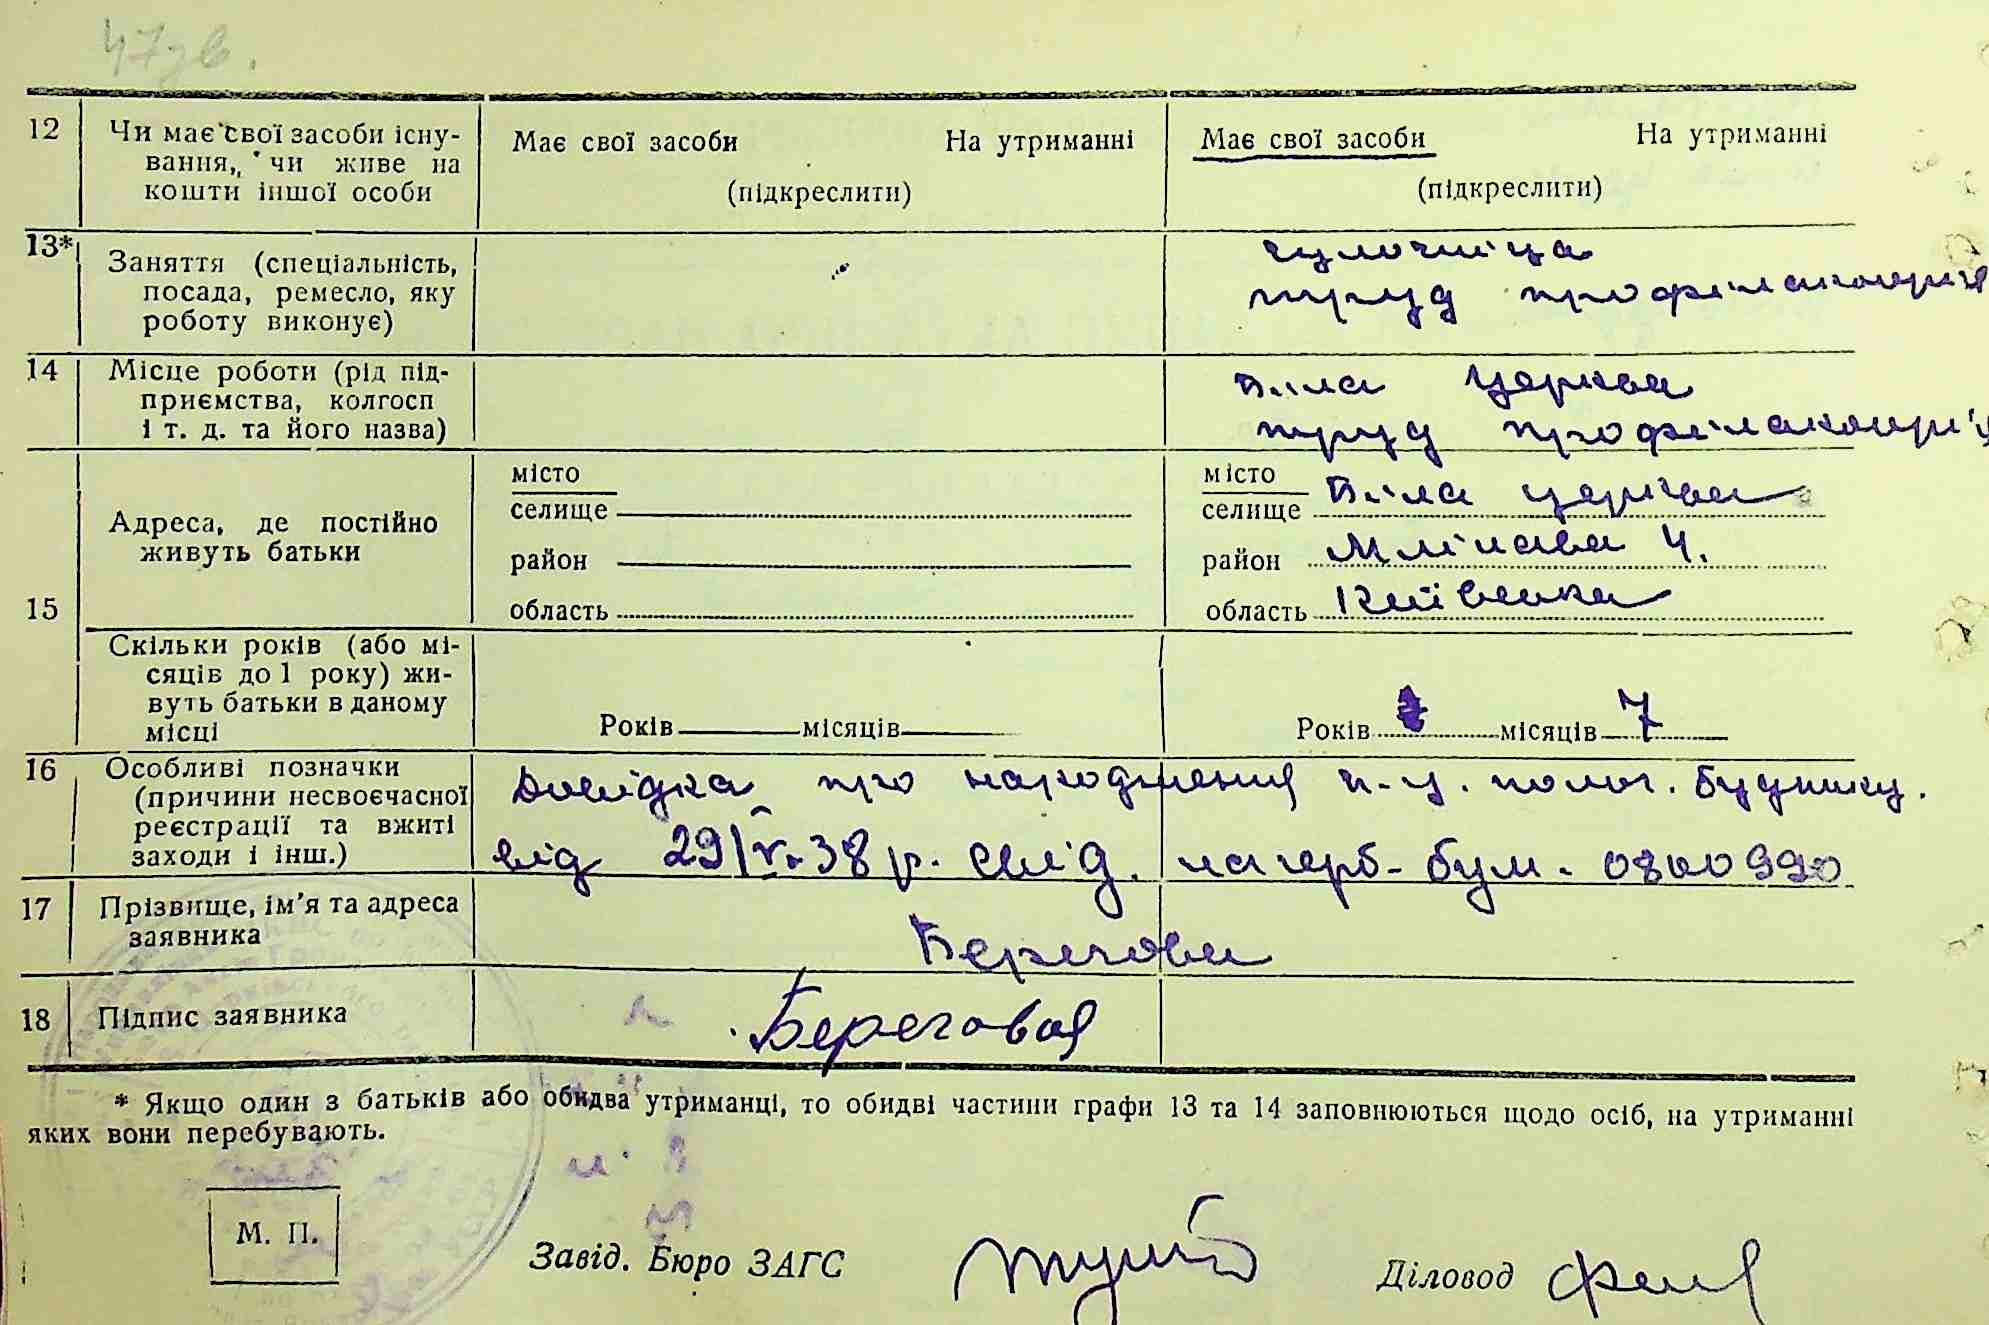 47зв.
12 Чи має свої засоби існу-
вання, чи живе на
кошти іншої особи
Має свої засоби На утриманні
(підкреслити)
Має свої засоби На утриманні
(підкреслити)
13* Заняття (спеціальність,
посада, ремесло, яку
роботу виконує)
чулочніца
труд профілакторія
14 Місце роботи (рід під-
приємства, колгосп
і т. д. та його назва)
Біла Церква
труд профілакторія
15 Адреса, де постійно
живуть батьки
місто
селище
район
область
місто
селище Біла церква
район 4.
область Київська
Скільки років (або мі-
сяців до 1 року) жи-
вуть батьки в даному
місці
Років місяців
Років місяців 7
16 Особливі позначки
(причини несвоєчасної
реєстрації та вжиті
заходи і інш.)
Довідка про народження полог. будинку.
від 29/V-38 р. свід. на герб. бум. 0800990
17 Прізвище, ім'я та адреса
заявника
Берегова
18 Підпис заявника
Береговая
* Якщо один з батьків або обидва утриманці, то обидві частини графи 13 та 14 заповнюються щодо осіб, на утриманні
яких вони перебувають.
М. П.
Завід. Бюро ЗАГС
Діловод